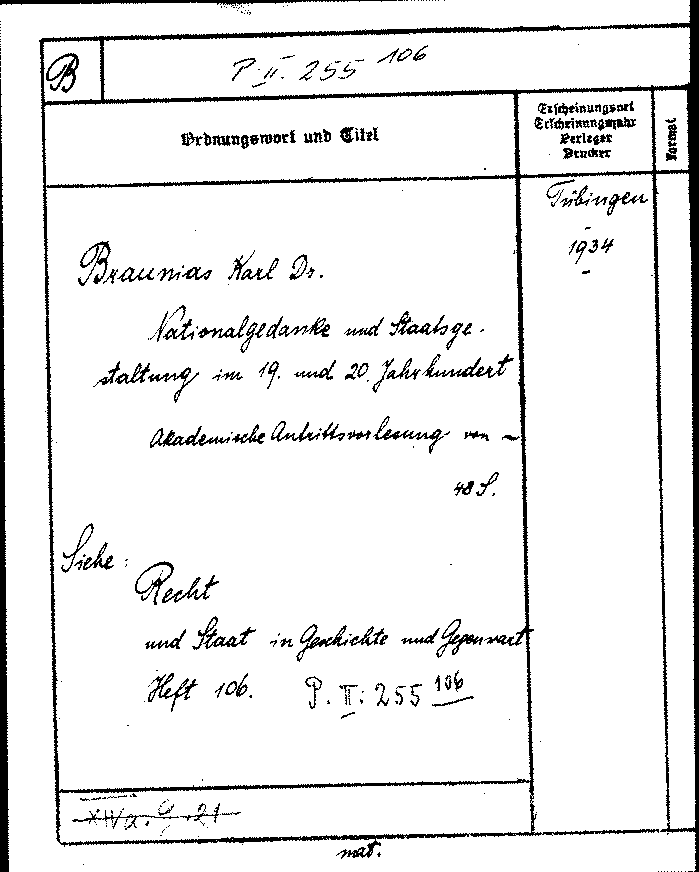 B
P. II. 255 106
Ordnungswort und Titel
Erscheinungsort
Erscheinungsjahr
Verleger
Drucker
Format
Tübingen
-
1934
-
Braunias Karl Dr.
Nationalgedanke und Staatsge-
staltung im 19. und 20. Jahrhundert
Akademische Antrittsvorlesung von –
48 S.
Siehe:
Recht
und Staat in Geschichte und Gegenwart
Heft 106. P. II: 255 106
XIVa. G. 21
mat.